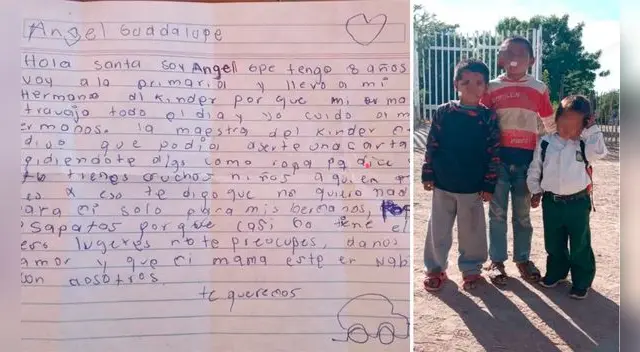 Angel Guadalupe
Hola santa soy Angel Gpe tengo 8 años
voy a la primaria y llevo a mi
Hermano al kinder por que mi mama
travaja todo el dia y yo cuido a mi
ermanos. la maestra del kinder
digo que podia aserte una carta
pidiendote algo como ropa
tu tienes muchos niños a quien
es x eso te digo que no quiero nad
para mi solo para mis hermanos,
sapatos por que casi no tiene el
juguetes no te preocupes, danos
amor y que mi mama este
con nosotros.
te queremos